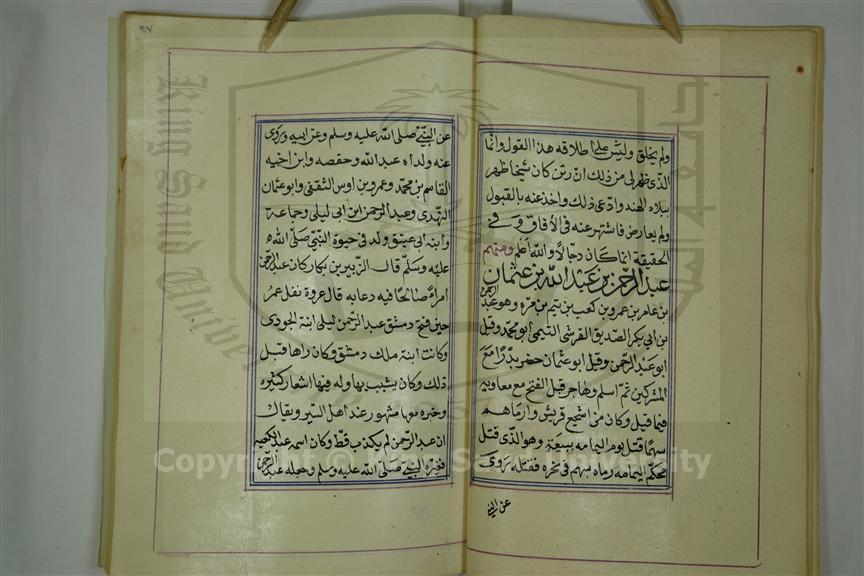 ولم يخلق وليس على اطلاقه هذا القول وانما
الذى ظهر لى من ذلك ان رتن كان شيخا ظهر
ببلاد الهند وادعى ذلك واخذ عنه بالقبول
ولم يعارض فاشتهر عنه فى الآفاق وفى
الحقيقة انما كان دجالا والله اعلم ومنهم
عبد الرحمن بن عبد الله بن عثمان
بن عامر بن عمرو بن كعب بن تيم بن مره وهو عبد الرحمن
بن ابى بكر الصديق القرشى التيمى ابو محمد وقيل
ابو عبد الرحمن وقيل ابو عثمان حضر بدرا مع
المشركين ثم اسلم وهاجر قبل الفتح مع معاويه
فيما قيل وكان من اشجع قريش وارماهم
سهما قتل يوم اليمامه سبعة وهو الذى قتل
محكم اليمامه رماه بسهم فى نحره فقتله روى
عن النبى
٢٧
عن النبى صلى الله عليه وسلم وعن ابيه وروى
عنه ولداه عبد الله وحفصه وابن اخيه
القاسم بن محمد وعمرو بن اوس الثقفى وابو عثمان
النهدى وعبد الرحمن ابن ابى ليلى وجماعة
وابنه ابى عتيق ولد فى حيوة النبى صلى الله
عليه وسلم قال الزبير بن بكار كان عبد الرحمن
امرأ صالحا فيه دعابه قال عروة نفل عمر
حين فتح دمشق عبد الرحمن ليلى ابنة الجودى
وكانت ابنة ملك دمشق وكان راها قبل
ذلك وكان يشبب بها وله فيها اشعار كثيره
وخبره معها مشهور عند اهل السير ويقال
ان عبد الرحمن لم يكذب قط وكان اسمه عبد الكعبه
فغيره النبى صلى الله عليه وسلم وجعله عبد الرحمن
King Saud University
جامعة الملك سعود
1957
Copyright © King Saud University